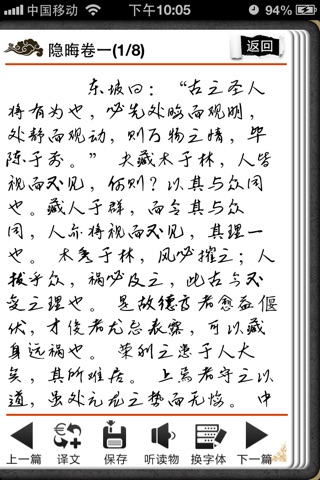 中国移动 下午10:05 94%
隐晦卷一(1/8) 返回
东坡曰：“古之圣人
将有为也，必先处晦而观明，
处静而观动，则万物之情，毕
陈于前。” 夫藏木于林，人皆
视而不见，何则？以其与众同
也。藏人于群，而令其与众
同，人亦将视而不见，其理一
也。 木秀于林，风必摧之；人
拔乎众，祸必及之，此古今不
变之理也。是故德高者愈益偃
伏，才俊者尤忌表露，可以藏
身远祸也。 荣利之惑于人大
矣，其所难居。上焉者守之以
道，虽处亢龙之势而无悔。中
上一篇 译文 保存 听读物 换字体 下一篇